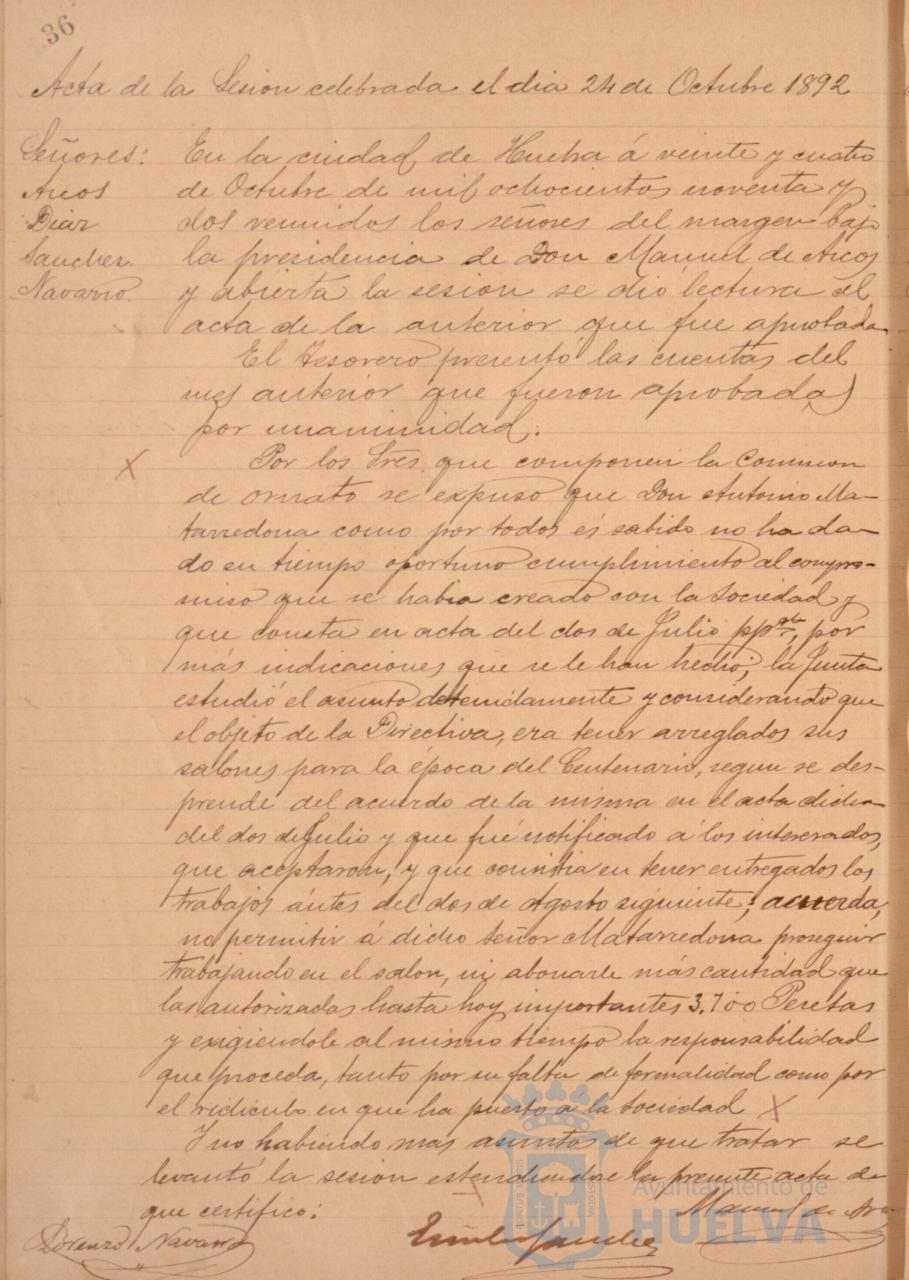 36
Acta de la Sesion celebrada el dia 24 de Octubre 1892
Señores:
Arcos
Diaz
Sanchez
Navarro.
En la ciudad de Huelva á veinte y cuatro
de Octubre de mil ochocientos noventa y
dos reunidos los señores del margen bajo
la presidencia de Don Manuel de Arcos
y abierta la sesion se dió lectura al
acta de la anterior que fue aprobada
El Tesorero presentó las cuentas del
mes anterior que fueron aprobadas
por unanimidad.
Por los Sres. que componen la Comision
de ornato se expuso que Don Antonio Ma-
tarredona como por todos es sabido no ha da-
do en tiempo oportuno cumplimiento al compro-
miso que se habia creado con la Sociedad y
que consta en acta del dos de Julio pp, por
más indicaciones que se le han hecho; la Junta
estudió el asunto detenidamente y considerando que
el objeto de la Directiva, era tener arreglados sus
salones para la época del Centenario, segun se des-
prende del acuerdo de la misma en el acta dicha
del dos de Julio y que fué notificado á los interesados,
que aceptaron, y que consistia en tener entregados los
trabajos ántes del dos de Agosto siguiente; acuerda,
no permitir á dicho Señor Matarredona proseguir
trabajando en el salon, ni abonarle más cantidad que
las autorizadas hasta hoy importantes 3.700 Pesetas
y exigiendole al mismo tiempo la responsabilidad
que proceda, tanto por su falta de formalidad como por
el ridiculo en que ha puesto a la Sociedad
Y no habiendo más asuntos de que tratar se
levantó la sesion estendiendose la presente acta de
que certifico:
Manuel de Arcos
Lorenzo Navarro
Emilio Sanchez
Ayuntamiento de
HUELVA